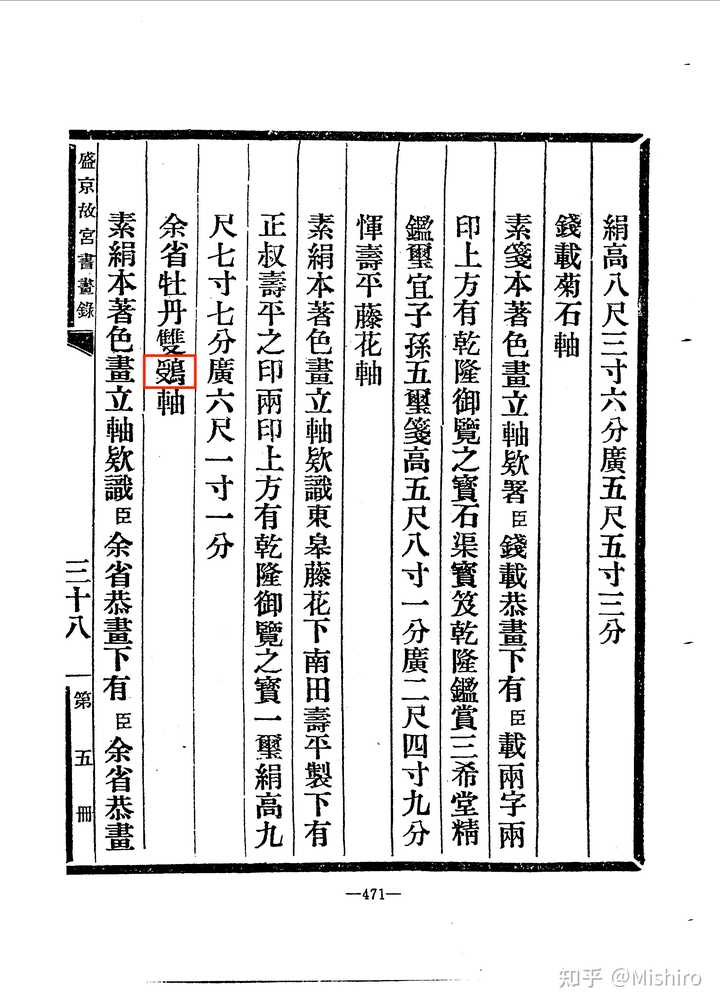 絹高八尺三寸六分廣五尺五寸三分
錢載菊石軸
素箋本著色畫立軸欵署臣錢載恭畫下有臣載兩字兩
印上方有乾隆御覽之寶石渠寶笈乾隆鑑賞三希堂精
鑑璽宜子孫五璽箋高五尺八寸一分廣二尺四寸九分
惲壽平藤花軸
素絹本著色畫立軸欵識東皋藤花下南田壽平製下有
正叔壽平之印兩印上方有乾隆御覽之寶一璽絹高九
尺七寸七分廣六尺一寸一分
余省牡丹雙軸
素絹本著色畫立軸欵識臣余省恭畫下有臣余省恭畫
盛京故宮書畫錄
三十八
第五冊
—471—
知乎 @Mishiro